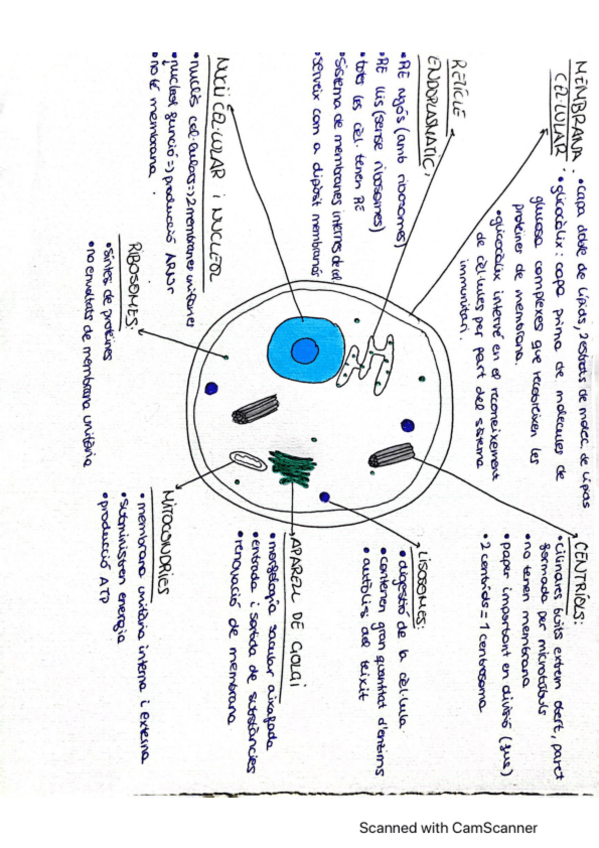 MEMBRANA CEL·LULAR:
• capa doble de lípids, 2 estrats de molec. de lípids
• glicocàlix: capa prima de molècules de
glucosa complexes que recobreixen les
proteïnes de membrana.
• glicocàlix intervé en el reconeixement
de cèl·lules per part del sistema
immunitari.
RETICLE
ENDOPLASMÀTIC:
• RE rugós (amb ribosomes)
• RE llis (sense ribosomes)
• totes les cèl. tenen RE
• sistema de membranes internes de cèl
• serveix com a dipòsit membranós
NUCLI CEL·LULAR I NUCLÈOL
• nuclis cel·lulars => 2 membranes unitàries
• nuclèol funció => producció ARNr
• no té membrana.
RIBOSOMES:
• síntesi de proteïnes
• no envoltats de membrana unitària
CENTRÍOLS:
• cilindres buits extrem obert, paret
formada per microtúbuls
• no tenen membrana
• paper important en divisió (fus)
• 2 centríols = 1 centrosoma
LISOSOMES:
• digestió de la cèl·lula
• contenen gran quantitat d'enzims
• autòlisi del teixit
APARELL DE GOLGI
• morfologia sacular aixafada
• entrada i sortida de substàncies
• renovació de membrana
MITOCONDRIES
• membrana unitària interna i externa
• subministren energia
• producció ATP
Scanned with CamScanner